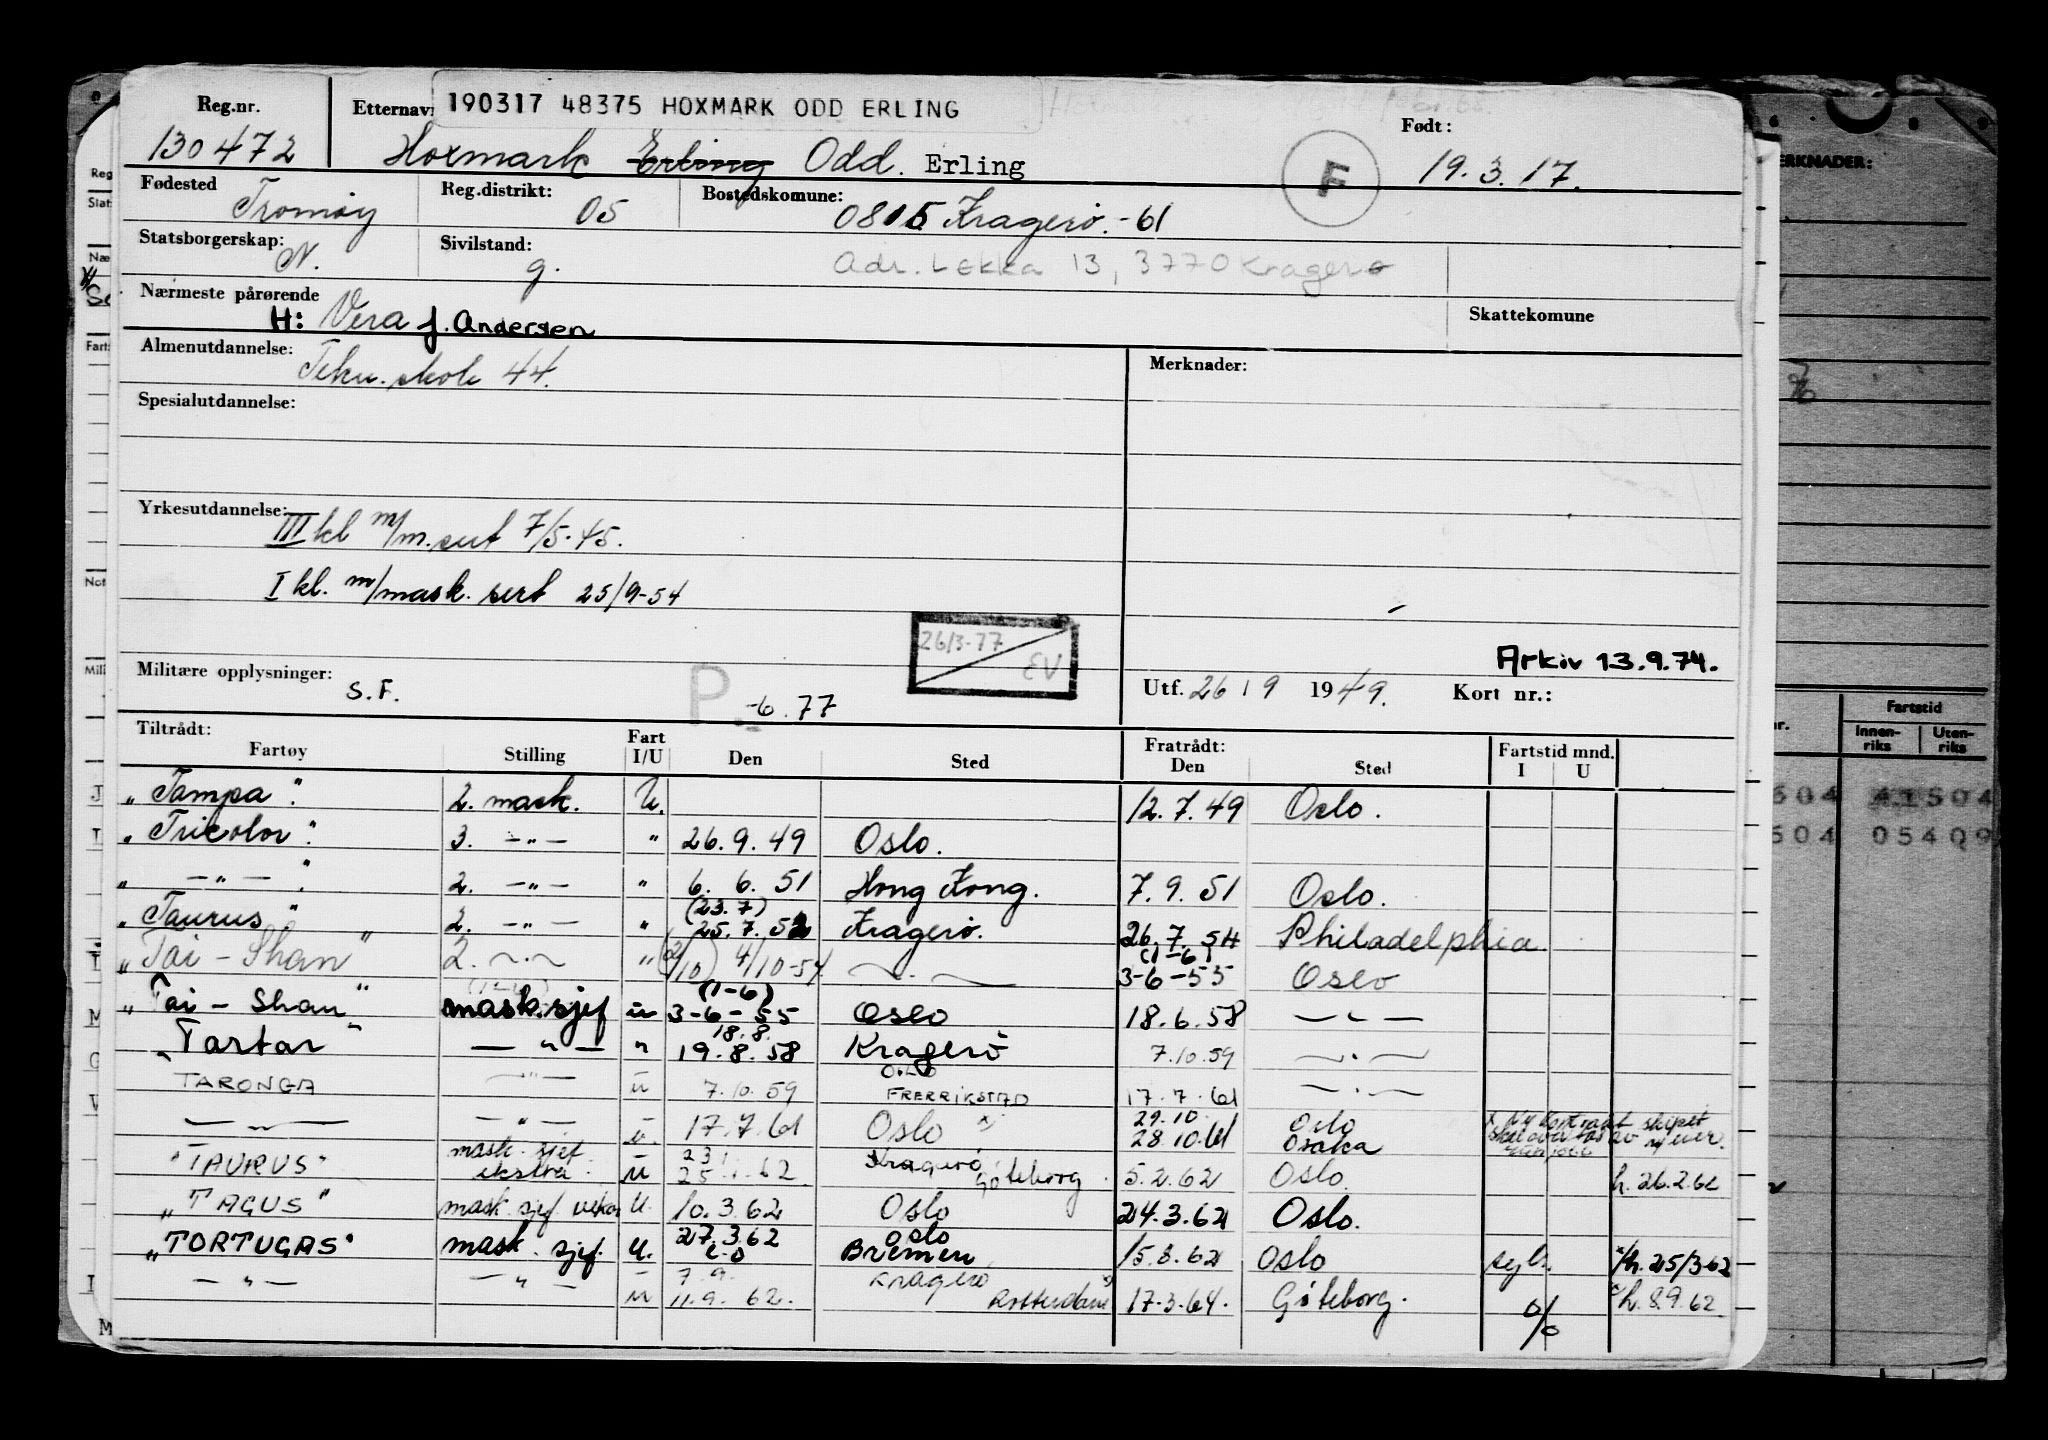 Reg.nr. Etternavn 190317 48375 HOXMARK ODD ERLING Født:
130472 Hoxmark Erling Odd. Erling F 19.3.17.
Fødested Tromøy Reg.distrikt: 05 Bostedskomune: 0815 Kragerø.-61
Statsborgerskap: N. Sivilstand: g. Adr. Løkka 13, 3770 Kragerø
Nærmeste pårørende H: Vera J. Andersen Skattekomune
Almenutdannelse: Tekn. skole 44. Merknader:
Spesialutdannelse:
Yrkesutdannelse: III kl m/m. sert 7/5-45.
I kl. m/mask. sert 25/9-54
26/3-77 EV
Arkiv 13.9.74.
Militære opplysninger: S.F. P. -6.77 Utf. 26 / 9 1949. Kort nr.:
Tiltrådt: Fratrådt: Fartstid mnd.
Fartøy Stilling Fart I/U Den Sted Den Sted I U
"Tampa" 2. mask. U. 12.7.49 Oslo.
"Tricolor" 3. -"- " 26.9.49 Oslo.
" -"- " 2. -"- " 6.6.51 Hong Kong. 7.9.51 Oslo.
(23.7)
"Taurus" 2. -"- " 25.7.52 Kragerø. 26.7.54 Philadelphia
(1-6)
"Tai-Shan" 2. -"- " (2/10) 4/10-54 -"- 3-6-55 Oslo
(1-6)
"Tai-Shan" mask.sjef u 3-6-55 Oslo 18.6.58 -"-
18.8.
"Tartar" -"- " 19.8.58 Kragerø 7.10.59 -"-
OSLO
TARONGA -"- u 7.10.59 FREDRIKSTAD 17.7.61 -"-
29.10. Oslo
-"- -"- u. 17.7.61 Oslo x) 28.10.61 Osaka
x Ny kontrakt skipet
"TAURUS" mask. sjef ekstra. u 23.1 25.1.62 Kragerø Göteborg 5.2.62 Oslo. h. 26.2.62
"TAGUS" mask. sjef vikar U. 10.3.62 Oslo 24.3.62 Oslo.
27.3.62 Oslo
"TORTUGAS" mask. sjef. U. Bremen 15.8.62 Oslo x/h. 25/3-62
-"- -"- 7.9. Kragerø
u 11.9.62. Rotterdam 17.3.64. Göteborg. h. 8.9.62
%
ERKNADER:
Fartstid
nr. Innen-riks Uten-riks
504 41504
504 05409